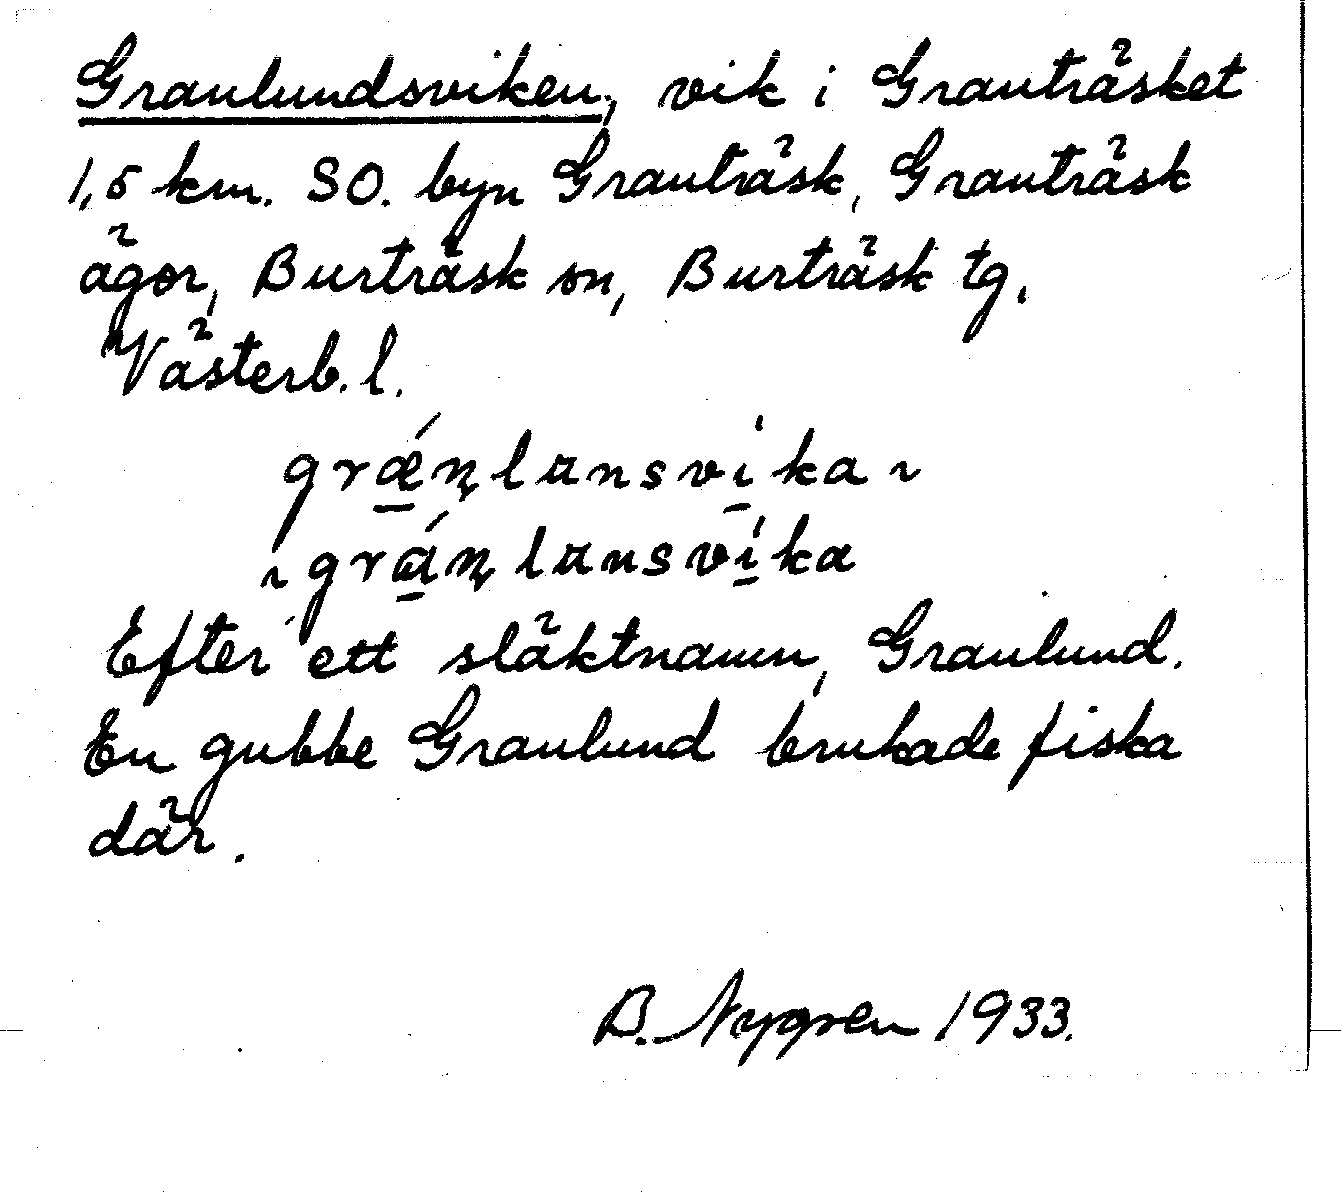 Granlundsviken, vik i Granträsket
1,5 km. SO. byn Granträsk, Granträsk
ägor, Burträsk sn, Burträsk tg.
Västerb. l.
grǽ̲n̨lɯnsvi̲̍ka ~
~ grɑ̲́n̨lɯnsvi̲̍ka
Efter ett släktnamn, Granlund.
En gubbe Granlund brukade fiska
där.
B. Nygren 1933.